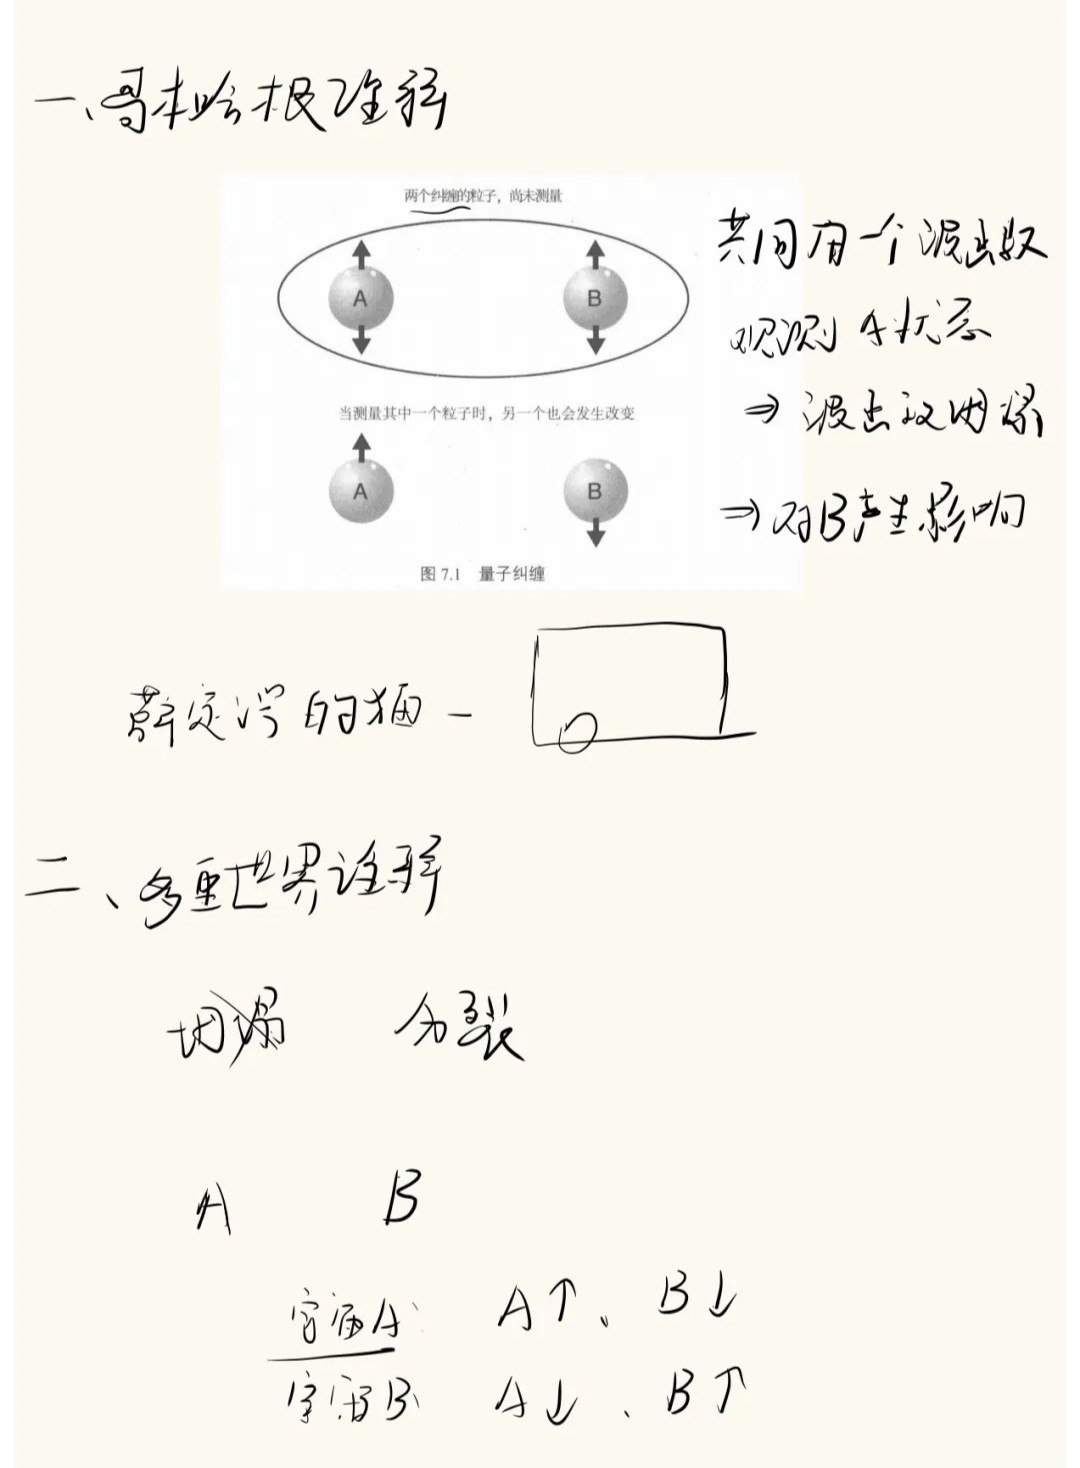 一、哥本哈根诠释
两个纠缠的粒子，尚未测量
A B
共同有一个波函数
观测A状态
当测量其中一个粒子时，另一个也会发生改变
⇒ 波函数坍塌
A B
⇒ 对B产生影响
图 7.1 量子纠缠
薛定谔的猫 -
二、多重世界诠释
坍塌 分裂
A B
宇宙A A↑、B↓
宇宙B A↓、B↑